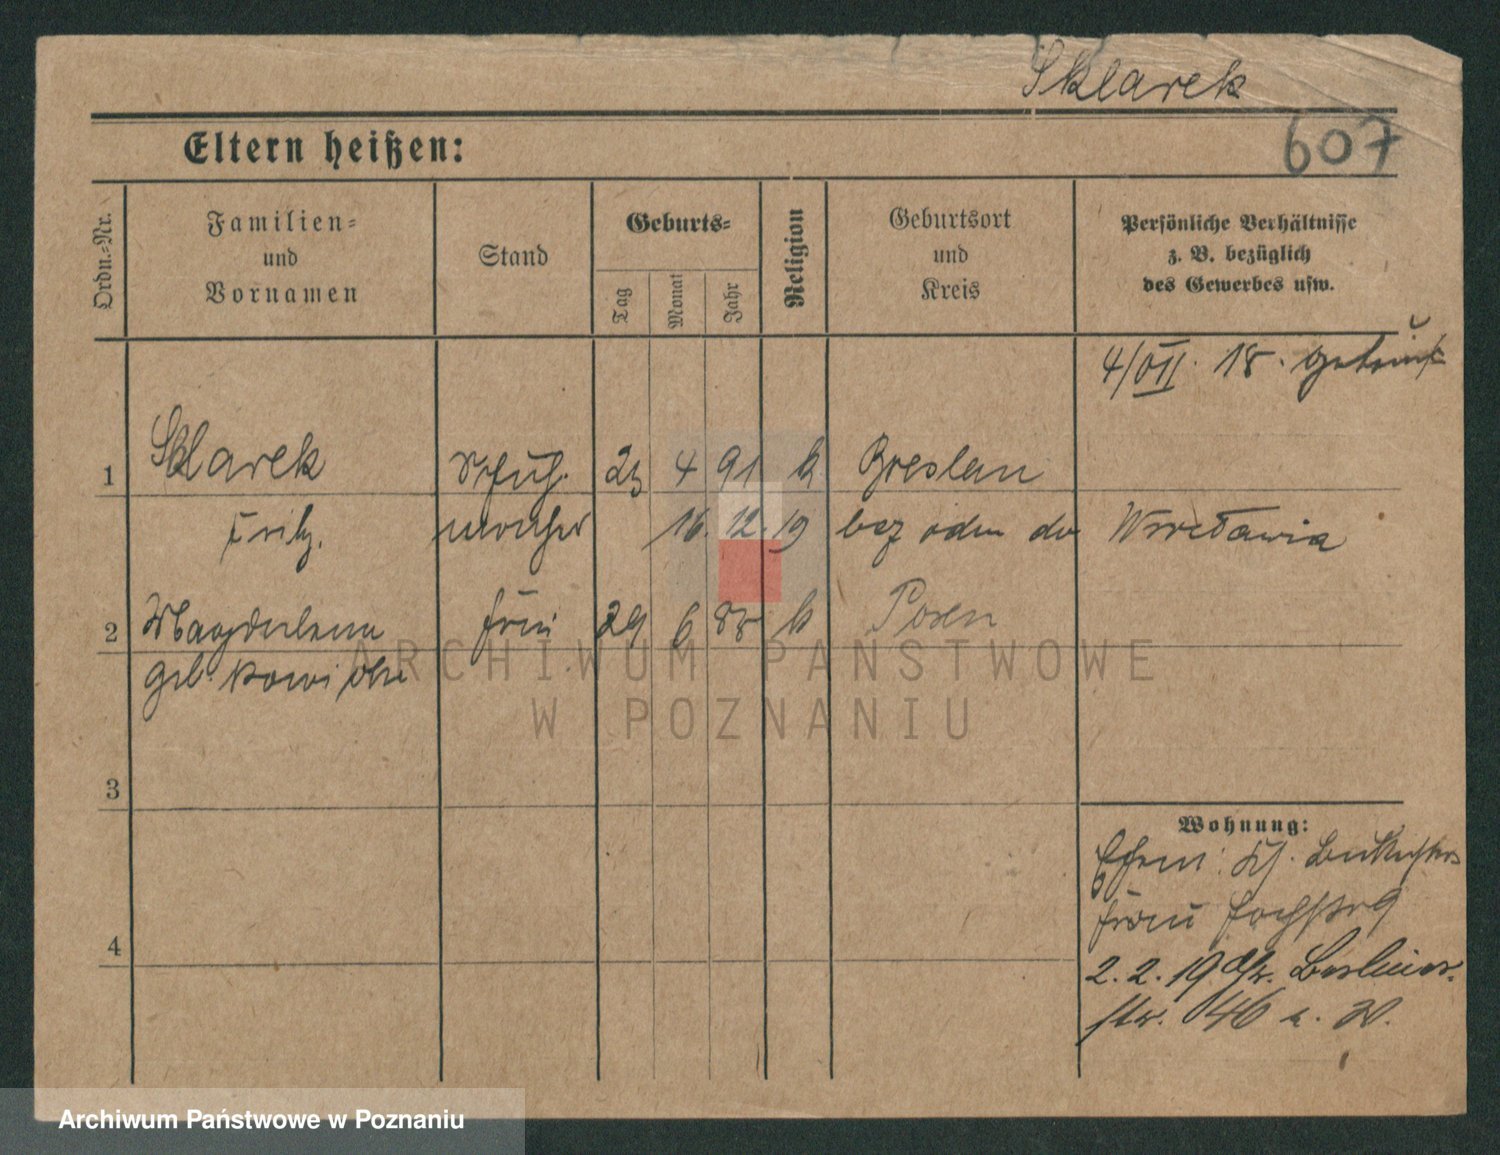 Sklarek
607
Eltern heißen:
Ordn.-Nr.
Familien-
und
Vornamen
Stand
Geburts-
Tag
Monat
Jahr
Religion
Geburtsort
und
Kreis
Persönliche Verhältnisse
z. B. bezüglich
des Gewerbes usw.
4/VII. 18. getraut
1 Sklarek Schuh. 23 4 91 k Breslau
Fritz. macher 16. 12. 19 bez oden do Wrocławia
2 Magdalena Frau 29 6 88 k Posen
geb.
3
4
Wohnung:
Ehem:
Frau
2. 2. 19 Berliner-
str. 46 a. W.
ARCHIWUM PAŃSTWOWE
W POZNANIU
Archiwum Państwowe w Poznaniu